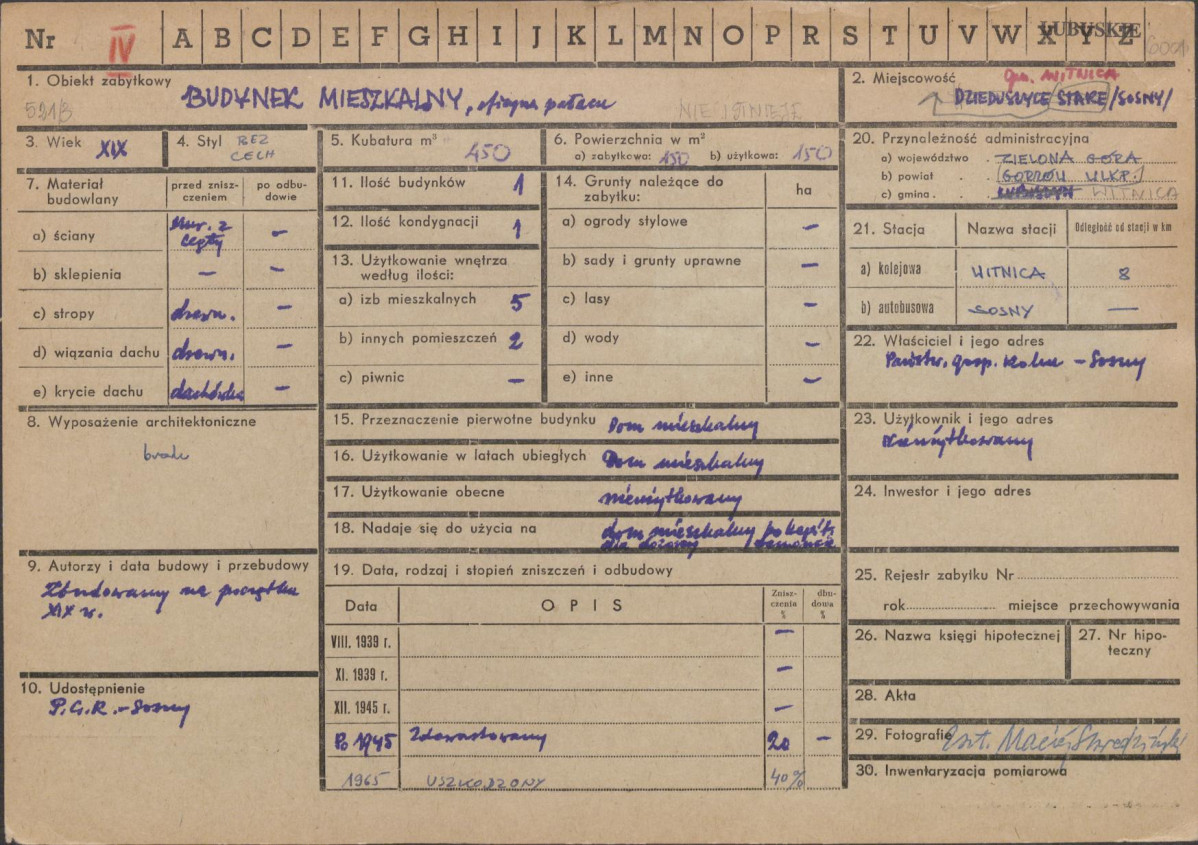 Nr IV A B C D E F G H I J K L M N O P R S T U V W X Y Z
LUBUSKIE
1. Obiekt zabytkowy
521/3
BUDYNEK MIESZKALNY, oficyna pałacu
NIE ISTNIEJE
2. Miejscowość
gm. WITNICA
DZIEDUSZYCE STARE /SOSNY/
3. Wiek XIX
4. Styl BEZ
CECH
5. Kubatura m³
450
6. Powierzchnia w m²
a) zabytkowa: 150 b) użytkowa: 150
20. Przynależność administracyjna
a) województwo . ZIELONA GÓRA
b) powiat . . (GORZÓW WLKP.)
c) gmina . . WITNICA
7. Materiał
budowlany
przed znisz-
czeniem
po odbu-
dowie
a) ściany Mur. z
cegły –
b) sklepienia – –
c) stropy drewn. –
d) wiązania dachu drewn. –
e) krycie dachu dachówka –
8. Wyposażenie architektoniczne
brak
9. Autorzy i data budowy i przebudowy
Zbudowany na początku
XIX w.
10. Udostępnienie
P.G.R. - Sosny
11. Ilość budynków 1
12. Ilość kondygnacji 1
13. Użytkowanie wnętrza
według ilości:
a) izb mieszkalnych 5
b) innych pomieszczeń 2
c) piwnic –
14. Grunty należące do
zabytku:
ha
a) ogrody stylowe –
b) sady i grunty uprawne –
c) lasy –
d) wody –
e) inne –
15. Przeznaczenie pierwotne budynku Dom mieszkalny
16. Użytkowanie w latach ubiegłych Dom mieszkalny
17. Użytkowanie obecne nieużytkowany
18. Nadaje się do użycia na dom mieszkalny po kapit.
remoncie
19. Data, rodzaj i stopień zniszczeń i odbudowy
Data OPIS Znisz-
czenia
%
dbu-
dowa
%
VIII. 1939 r. –
XI. 1939 r. –
XII. 1945 r. –
Po 1945 Zdewastowany 20 –
1965 USZKODZONY 40%
21. Stacja Nazwa stacji Odległość od stacji w km
a) kolejowa WITNICA 8
b) autobusowa SOSNY —
22. Właściciel i jego adres
Państw. Gosp. Rolne - Sosny
23. Użytkownik i jego adres
nieużytkowany
24. Inwestor i jego adres
25. Rejestr zabytku Nr
rok miejsce przechowywania
26. Nazwa księgi hipotecznej
27. Nr hipo-
teczny
28. Akta
29. Fotografie
30. Inwentaryzacja pomiarowa